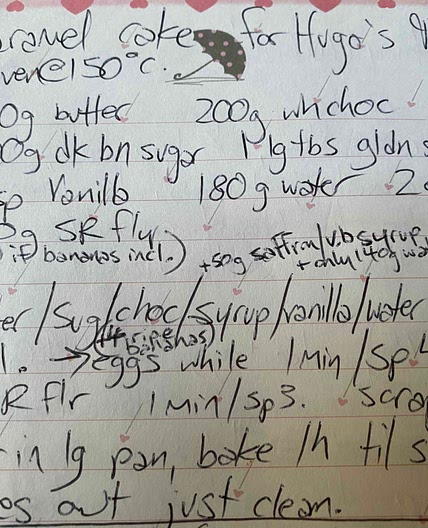 ramel cake for Hugo's 9
ven@150°c.
0g butter 200g whchoc
0g dk bn sugar 1 lg tbs gldn s
sp Vanilla 180g water 2
g SR flr.
if bananas incl.) +50g saffron/vb syrup
+ only 140g wa
er/sug/choc/syrup/vanilla/water
(+ ripe bananas)
l. → eggs while 1min/sp4
R flr 1min/sp3. scra
in lg pan, bake 1h til s
os out just clean.